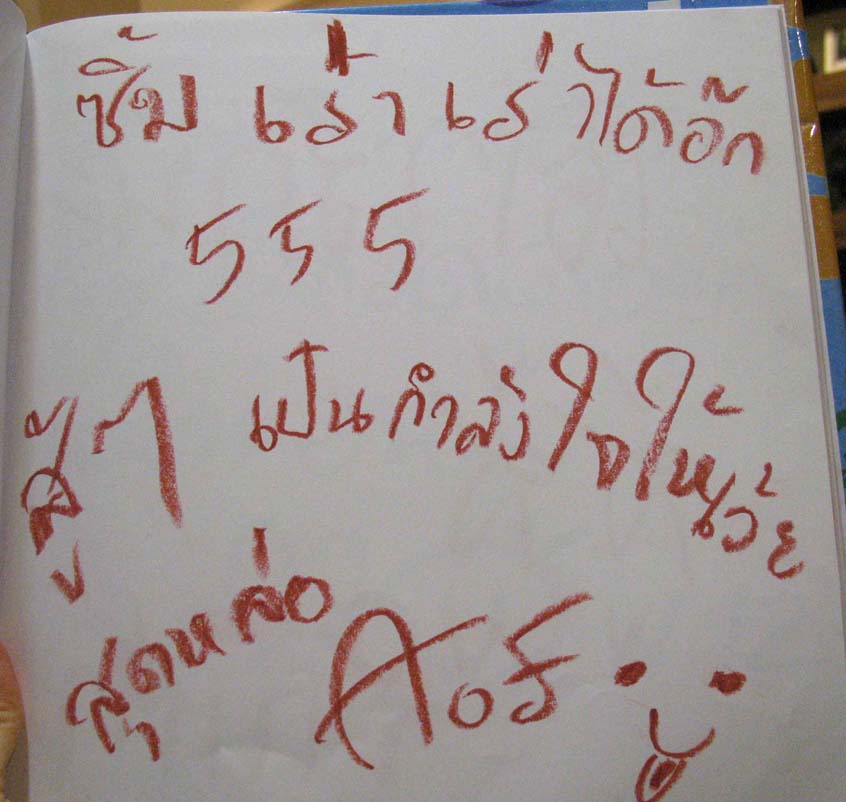 ซิ้ม เร่า เร่าได้อีก
555
สู้ๆ เป็นกำลังใจให้เว้ย
สุดหล่อ